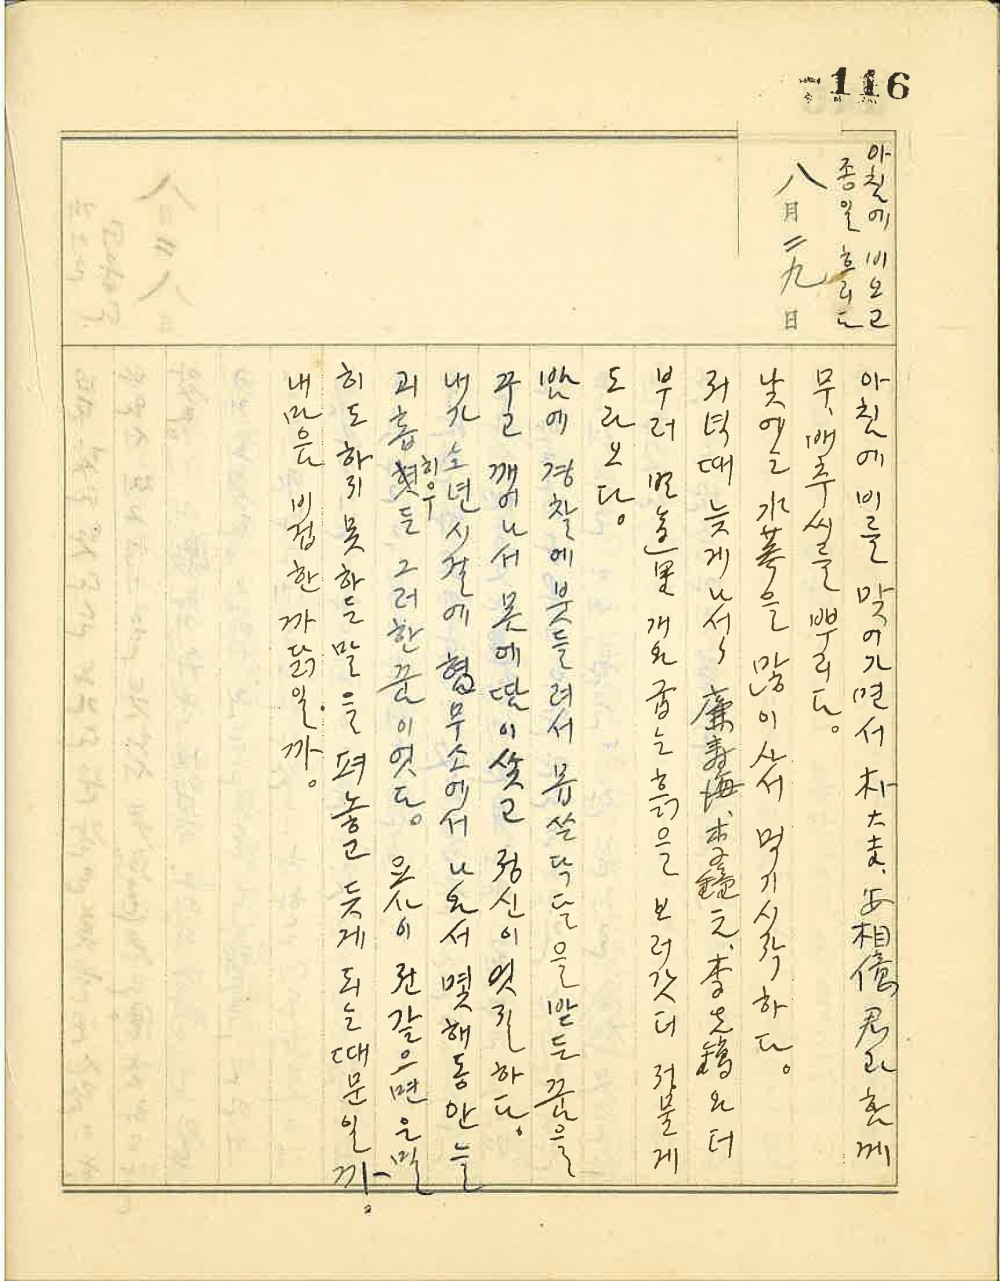 116
아침에 비오고
종일 흐리다
八月二九日
아침에 비를 맞어가면서 朴大圭、安相僑君과 함께
무、배추씨를 뿌리다。
낮에는 水蔘을 많이 사서 먹기시작하다。
저녁때 늦게 나서 廉壽海、李鍾元、李光鎬와 더
부러 明道里 개와 굽는 흙을 보러갓더 저물게
도라오다。
밤에 경찰에 붓들려서 몹쓸 닥달을 받는 꿈을
꾸고 깨어나서 몸에 땀이 솟고 정신이 엇질하다。
내가 소년시절에 형무소에서 나와서 몇해동안늘
괴롭혓든 그러한 꿈이엇다。요사이 전갈으면 은밀
희우
히도 하지못하든 말을 펴놓고 듯게 되는 때문일까。
내맘은 비겁한 까닭일까。